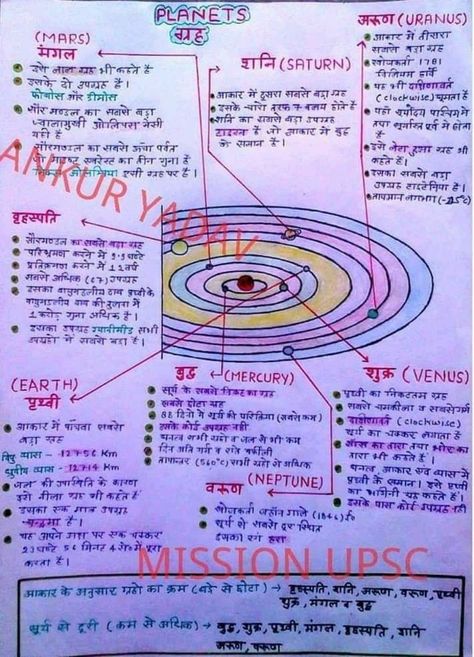 PLANETS
ग्रह
(MARS)
मंगल
इसे लाल ग्रह भी कहते हैं
इसके दो उपग्रह हैं।
फोबोस और डीमोस
सौरमण्डल का सबसे बड़ा
ज्वालामुखी ओलिपस मेसी
यही है
सौरमण्डल का सबसे ऊंचा पर्वत
जो माउण्ट एवरेस्ट का तीन गुना है
इसी ग्रह पर है।
शनि (SATURN)
आकार में दूसरा सबसे बड़ा ग्रह
इसके चारो तरफ 7 वलय होते हैं
शनि का सबसे बड़ा उपग्रह
टाइटन है जो आकार में बुध
के समान है।
अरुण (URANUS)
आकार में तीसरा
सबसे बड़ा ग्रह
खोजकर्ता 1781
विलियम हर्शेल
यह भी दक्षिणावर्त
(clockwise) घूमता है
यहाँ सूर्योदय पश्चिम में
तथा सूर्यास्त पूर्व में होता है
इसे लेटा हुआ ग्रह भी
कहते हैं।
इसका सबसे बड़ा
उपग्रह टाइटेनिया है।
तापमान लगभग (-215°c)
ANKUR YADAV
बृहस्पति
सौरमण्डल का सबसे बड़ा ग्रह
परिभ्रमण करने में 9.5 घण्टे
परिक्रमण करने में 12 वर्ष
सबसे अधिक (67) उपग्रह
इसका वायुमण्डलीय दाब पृथ्वी के
वायुमण्डलीय दाब की तुलना में
1 करोड़ गुना अधिक है।
इसका उपग्रह ग्यानीमीड सभी
उपग्रहों में सबसे बड़ा है।
(EARTH)
पृथ्वी
आकार में पाँचवा सबसे
बड़ा ग्रह
व्यास - 12756 Km
ध्रुवीय व्यास - 12714 Km
जल की उपस्थिति के कारण
इसे नीला ग्रह भी कहते हैं
इसका एक मात्र उपग्रह
चन्द्रमा है।
यह अपने अक्ष पर एक चक्कर
23 घण्टे 56 मिनट 4 सेकेंड में पूरा
करता है।
बुध (MERCURY)
सूर्य के सबसे निकट का ग्रह
सबसे छोटा ग्रह
88 दिनों में सूर्य की परिक्रमा (सबसे कम)
इसके कोई उपग्रह नहीं
घनत्व सभी ग्रहों व जल से भी कम
दिन अति गर्म व रातें बर्फीली
तापान्तर (560°c) सभी ग्रहों से अधिक
शुक्र (VENUS)
पृथ्वी का निकटतम ग्रह
सबसे चमकीला व सबसे गर्म
दक्षिणावर्त (clockwise)
सूर्य का चक्कर लगाता है
साँझ का तारा तथा भोर का
तारा भी कहते हैं।
घनत्व, आकार एवं व्यास में
पृथ्वी के समान। इसे पृथ्वी
का भगिनी ग्रह कहते हैं।
इसके पास कोई उपग्रह नहीं
वरुण (NEPTUNE)
खोजकर्ता जहॉन गाले (1846) में
सूर्य से सबसे दूर स्थित
इसका रंग हरा
MISSION UPSC
आकार के अनुसार ग्रहों का क्रम (बड़े से छोटा) → बृहस्पति, शनि, अरुण, वरुण, पृथ्वी
शुक्र, मंगल व बुध
सूर्य से दूरी (कम से अधिक) → बुध, शुक्र, पृथ्वी, मंगल, बृहस्पति, शनि
अरुण, वरुण